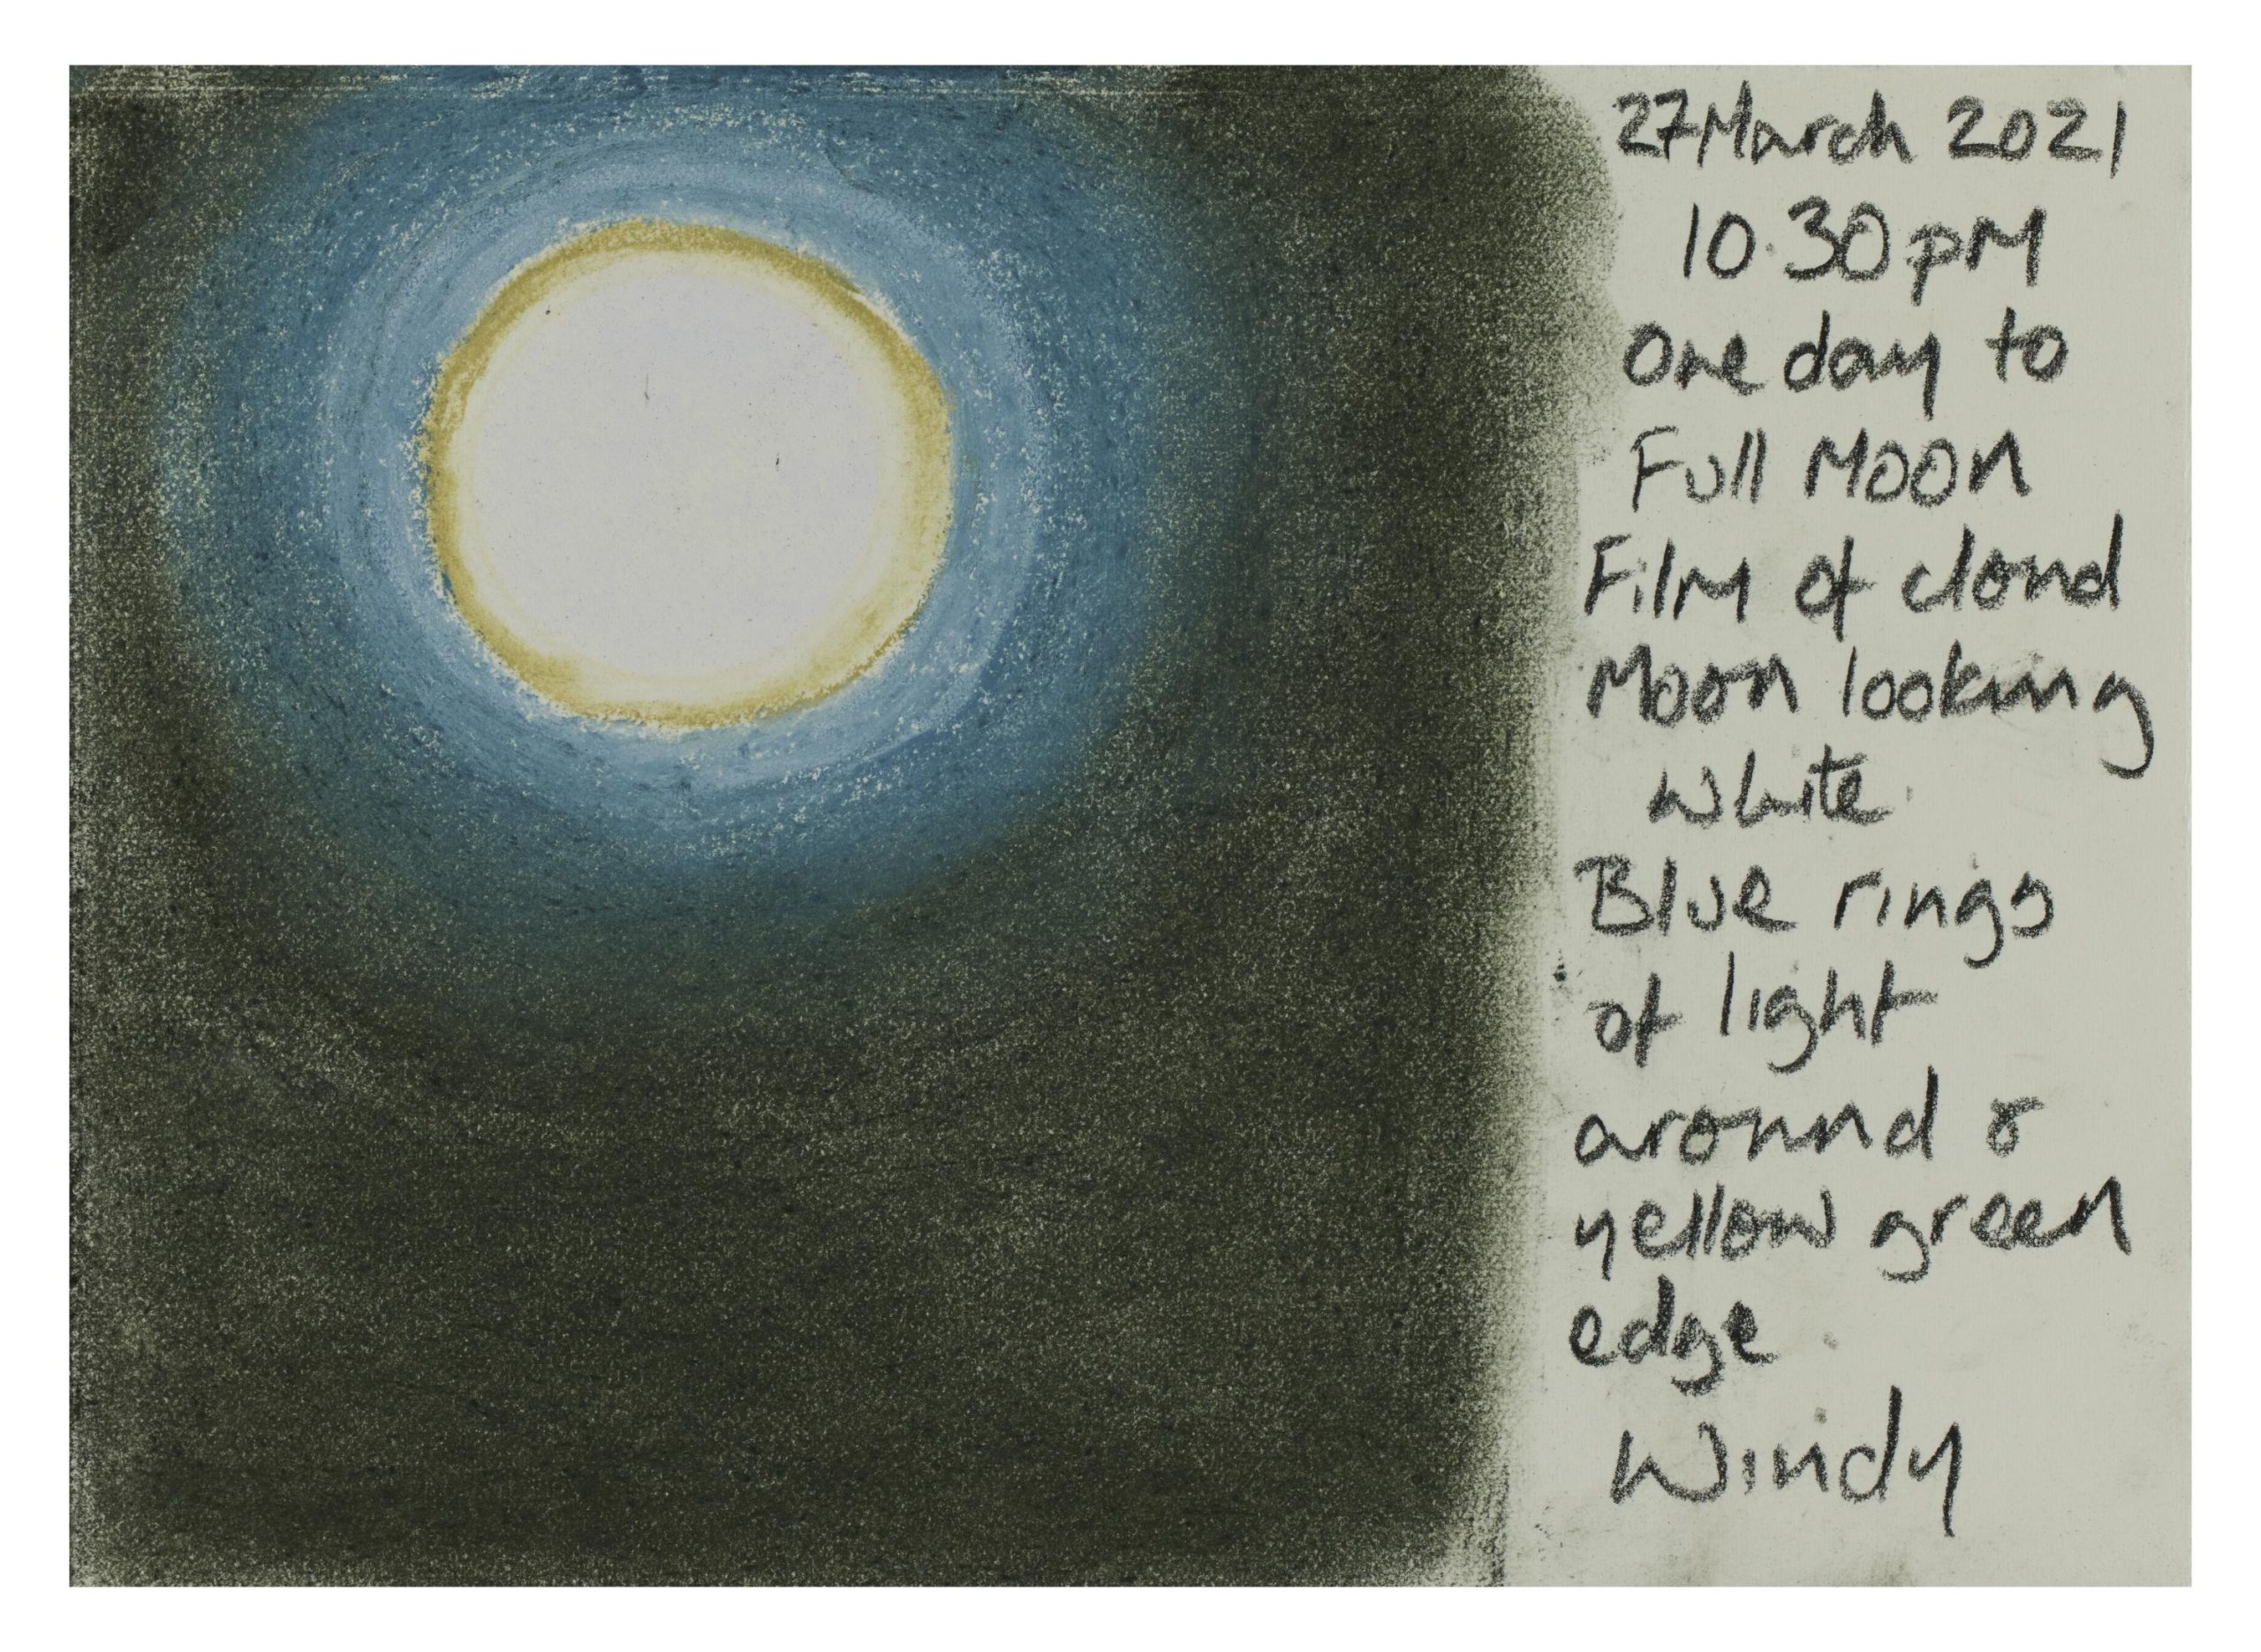 27 March 2021
10.30 pm
One day to
Full Moon
Film of cloud
Moon looking
white.
Blue rings
of light
around &
yellow green
edge
Windy